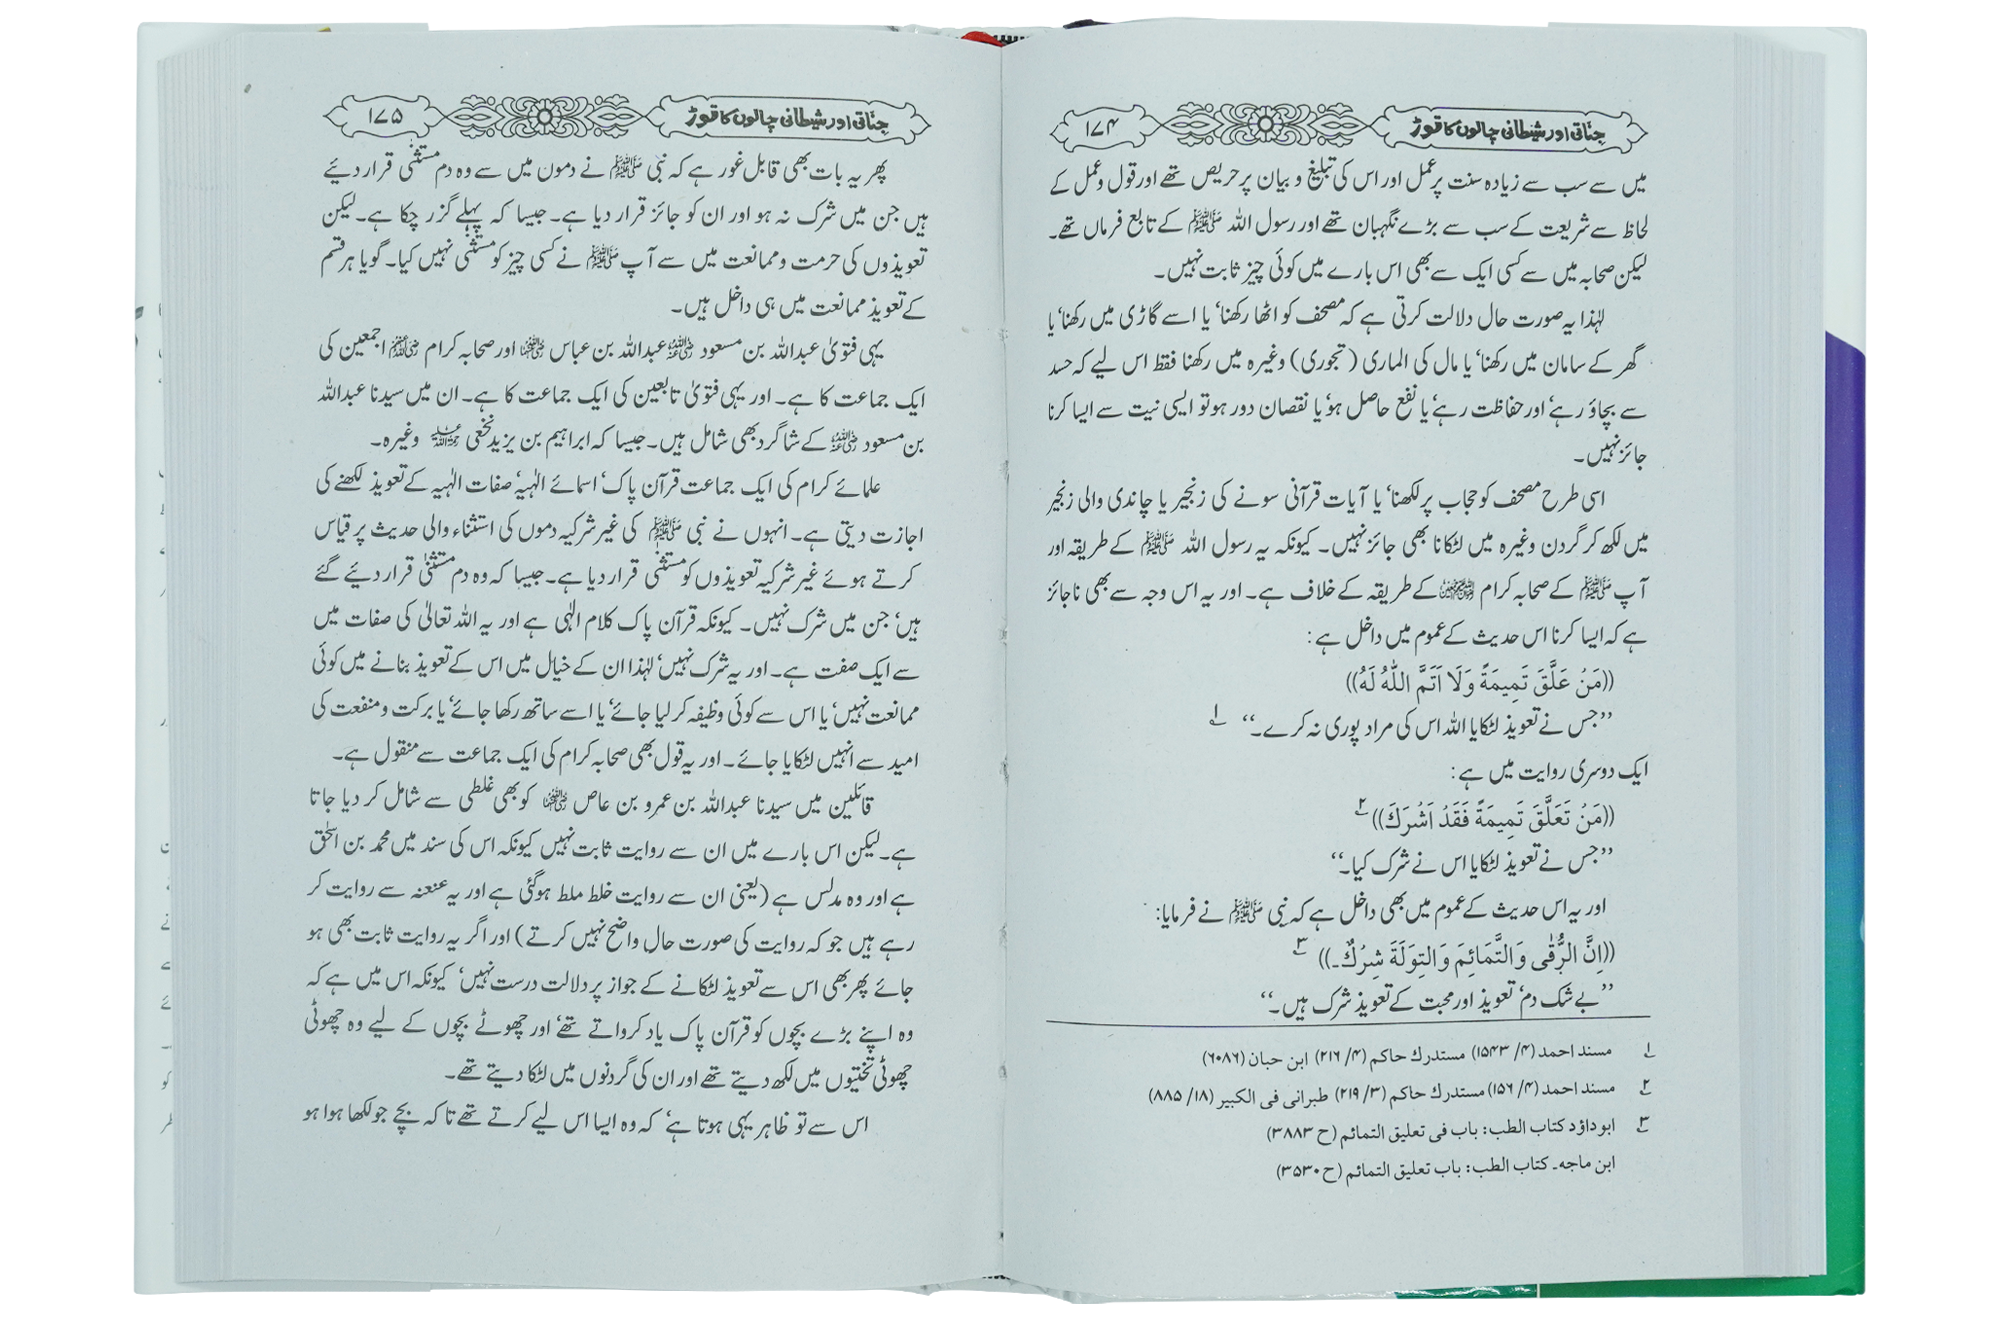 جناتی اور شیطانی چالوں کا توڑ ۱۷۴
میں سے سب سے زیادہ سنت پر عمل اور اس کی تبلیغ و بیان پر حریص تھے اور قول و عمل کے
لحاظ سے شریعت کے سب سے بڑے نگہبان تھے اور رسول اللہ ﷺ کے تابع فرماں تھے۔
لیکن صحابہ میں سے کسی ایک سے بھی اس بارے میں کوئی چیز ثابت نہیں۔
لہٰذا یہ صورت حال دلالت کرتی ہے کہ مصحف کو اٹھا رکھنا‘ یا اسے گاڑی میں رکھنا‘ یا
گھر کے سامان میں رکھنا‘ یا مال کی الماری (تجوری) وغیرہ میں رکھنا فقط اس لیے کہ حسد
سے بچاؤ رہے‘ اور حفاظت رہے‘ یا نفع حاصل ہو‘ یا نقصان دور ہو تو ایسی نیت سے ایسا کرنا
جائز نہیں۔
اسی طرح مصحف کو حجاب پر لکھنا‘ یا آیات قرآنی سونے کی زنجیر یا چاندی والی زنجیر
میں لکھ کر گردن وغیرہ میں لٹکانا بھی جائز نہیں۔ کیونکہ یہ رسول اللہ ﷺ کے طریقہ اور
آپ ﷺ کے صحابہ کرام کے طریقہ کے خلاف ہے۔ اور یہ اس وجہ سے بھی ناجائز
ہے کہ ایسا کرنا اس حدیث کے عموم میں داخل ہے:
((مَنْ عَلَّقَ تَمِيمَةً وَلَا اَتَمَّ اللّٰهُ لَهُ))
’’جس نے تعویذ لٹکایا اللہ اس کی مراد پوری نہ کرے۔‘‘ ۱
ایک دوسری روایت میں ہے:
((مَنْ تَعَلَّقَ تَمِيمَةً فَقَدْ اَشْرَكَ)) ۲
’’جس نے تعویذ لٹکایا اس نے شرک کیا۔‘‘
اور یہ اس حدیث کے عموم میں بھی داخل ہے کہ نبی ﷺ نے فرمایا:
((اِنَّ الرُّقٰى وَالتَّمَائِمَ وَالتِوَلَةَ شِرْكٌ۔)) ۳
’’بے شک دم‘ تعویذ اور محبت کے تعویذ شرک ہیں۔‘‘
۱ مسند احمد (۴/ ۱۵۴۳) مستدرك حاكم (۴/ ۲۱۶) ابن حبان (۶۰۸۶)
۲ مسند احمد (۴/ ۱۵۶) مستدرك حاكم (۳/ ۲۱۹) طبرانی فی الكبير (۱۸/ ۸۸۵)
۳ ابوداؤد كتاب الطب: باب فی تعليق التمائم (ح ۳۸۸۳)
ابن ماجه۔ كتاب الطب: باب تعليق التمائم (ح ۳۵۳۰)
جناتی اور شیطانی چالوں کا توڑ ۱۷۵
پھر یہ بات بھی قابل غور ہے کہ نبی ﷺ نے دموں میں سے وہ دم مستثنٰی قرار دیئے
ہیں جن میں شرک نہ ہو اور ان کو جائز قرار دیا ہے۔ جیسا کہ پہلے گزر چکا ہے۔ لیکن
تعویذوں کی حرمت و ممانعت میں سے آپ ﷺ نے کسی چیز کو مستثنٰی نہیں کیا۔ گویا ہر قسم
کے تعویذ ممانعت میں ہی داخل ہیں۔
یہی فتویٰ عبداللہ بن مسعود رضی اللہ عنہ عبداللہ بن عباس رضی اللہ عنہما اور صحابہ کرام اجمعین کی
ایک جماعت کا ہے۔ اور یہی فتویٰ تابعین کی ایک جماعت کا ہے۔ ان میں سیدنا عبداللہ
بن مسعود رضی اللہ عنہ کے شاگرد بھی شامل ہیں۔ جیسا کہ ابراہیم بن یزید نخعی رحمۃ اللہ علیہ وغیرہ۔
علمائے کرام کی ایک جماعت قرآن پاک‘ اسمائے الٰہیہ‘ صفات الٰہیہ کے تعویذ لکھنے کی
اجازت دیتی ہے۔ انہوں نے نبی ﷺ کی غیر شرکیہ دموں کی استثناء والی حدیث پر قیاس
کرتے ہوئے غیر شرکیہ تعویذوں کو مستثنٰی قرار دیا ہے۔ جیسا کہ وہ دم مستثنٰی قرار دیئے گئے
ہیں‘ جن میں شرک نہیں۔ کیونکہ قرآن پاک کلام الٰہی ہے اور یہ اللہ تعالیٰ کی صفات میں
سے ایک صفت ہے۔ اور یہ شرک نہیں‘ لہٰذا ان کے خیال میں اس کے تعویذ بنانے میں کوئی
ممانعت نہیں‘ یا اس سے کوئی وظیفہ کر لیا جائے‘ یا اسے ساتھ رکھا جائے‘ یا برکت و منفعت کی
امید سے انہیں لٹکایا جائے۔ اور یہ قول بھی صحابہ کرام کی ایک جماعت سے منقول ہے۔
قائلین میں سیدنا عبداللہ بن عمرو بن عاص رضی اللہ عنہما کو بھی غلطی سے شامل کر دیا جاتا
ہے۔ لیکن اس بارے میں ان سے روایت ثابت نہیں کیونکہ اس کی سند میں محمد بن اسحٰق
ہے اور وہ مدلس ہے (یعنی ان سے روایت خلط ملط ہوگئی ہے اور یہ عنعنہ سے روایت کر
رہے ہیں جو کہ روایت کی صورت حال واضح نہیں کرتے) اور اگر یہ روایت ثابت بھی ہو
جائے پھر بھی اس سے تعویذ لٹکانے کے جواز پر دلالت درست نہیں‘ کیونکہ اس میں ہے کہ
وہ اپنے بڑے بچوں کو قرآن پاک یاد کرواتے تھے‘ اور چھوٹے بچوں کے لیے وہ چھوٹی
چھوٹی تختیوں میں لکھ دیتے تھے اور ان کی گردنوں میں لٹکا دیتے تھے۔
اس سے تو ظاہر یہی ہوتا ہے‘ کہ وہ ایسا اس لیے کرتے تھے تاکہ بچے جو لکھا ہوا ہو